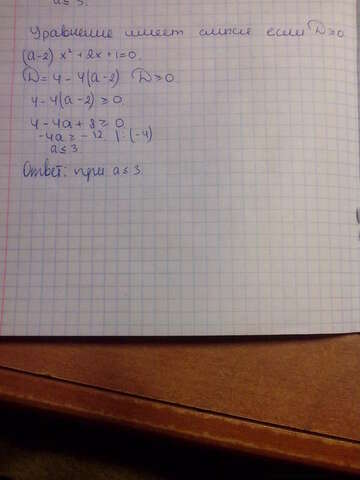 a ≤ 3.
Уравнение имеет смысл если D ≥ 0
(a-2) x² + 2x + 1 = 0.
D = 4 - 4(a-2) D ≥ 0.
4 - 4(a-2) ≥ 0
4 - 4a + 8 ≥ 0
-4a ≥ -12 | :(-4)
a ≤ 3.
Ответ: при a ≤ 3.